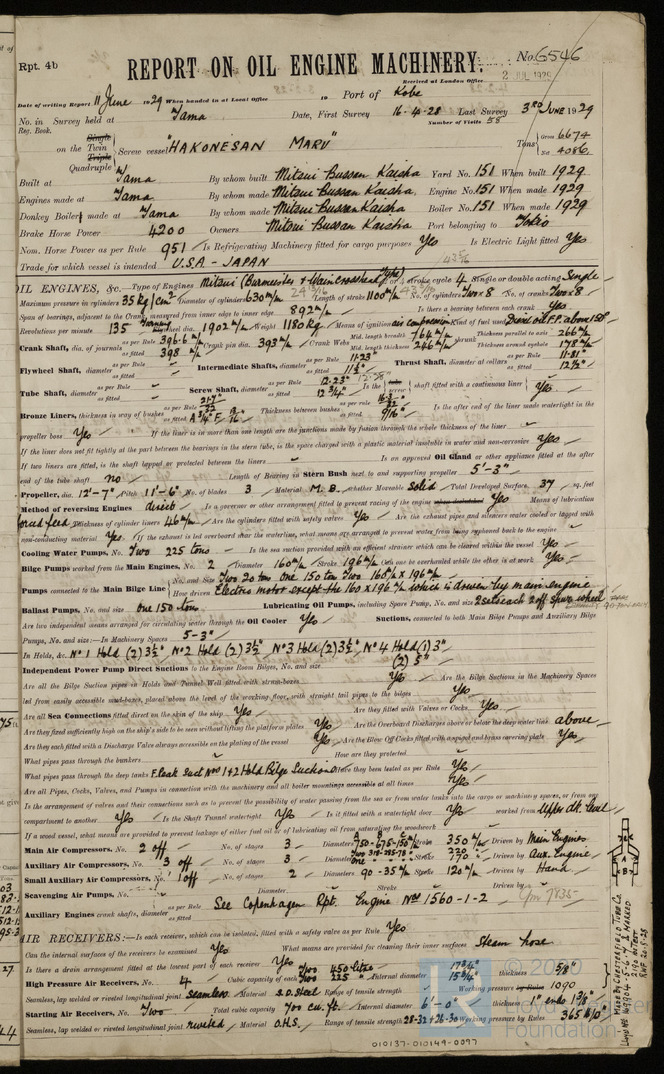 Rpt. 4b
REPORT ON OIL ENGINE MACHINERY.
No. 6546
Received at London Office 2 JUL 1929
Date of writing Report 11 June 1929 When handed in at Local Office 19 Port of Kobe
No. in Survey held at Tama Date, First Survey 16-4-28 Last Survey 3RD JUNE 1929
Reg. Book. Number of Visits 55
Single
on the Twin
Triple
Quadruple
Screw vessel "HAKONESAN MARU"
Tons Gross 6674
Net 4086
Built at Tama By whom built Mitsui Bussan Kaisha Yard No. 151 When built 1929
Engines made at Tama By whom made Mitsui Bussan Kaisha Engine No. 151 When made 1929
Donkey Boiler made at Tama By whom made Mitsui Bussan Kaisha Boiler No. 151 When made 1929
Brake Horse Power 4200 Owners Mitsui Bussan Kaisha Port belonging to Tokio
Nom. Horse Power as per Rule 951 Is Refrigerating Machinery fitted for cargo purposes Yes Is Electric Light fitted Yes
Trade for which vessel is intended U.S.A - JAPAN
OIL ENGINES, &c.—Type of Engines Mitsui (Burmeister & Wain Crosshead Type) 2 or 4 stroke cycle 4 Single or double acting Single
Maximum pressure in cylinders 35 kg/cm² Diameter of cylinders 630 m/m Length of stroke 1100 m/m No. of cylinders Two x 8 No. of cranks Two x 8
Span of bearings, adjacent to the Crank, measured from inner edge to inner edge 892 m/m Is there a bearing between each crank Yes
Revolutions per minute 135 Flywheel dia. 1902 m/m Weight 1180 kg Means of ignition air compression Kind of fuel used Diesel oil F.P. above 150
Crank Shaft, dia. of journals as per Rule 396.6 m/m as fitted 398 m/m Crank pin dia. 393 m/m Crank Webs Mid. length breadth 764 m/m Mid. length thickness 246 m/m shrunk Thickness parallel to axis 266 m/m Thickness around eyehole 178 m/m
Flywheel Shaft, diameter as per Rule as fitted Intermediate Shafts, diameter as per Rule 11.23" as fitted 11½" Thrust Shaft, diameter at collars as per Rule 11.81" as fitted 12½"
Tube Shaft, diameter as per Rule as fitted Screw Shaft, diameter as per Rule 12.23" as fitted 12¾" Is the screw shaft fitted with a continuous liner Yes
Bronze Liners, thickness in way of bushes as per Rule as fitted Thickness between bushes as per Rule as fitted 9/16" Is the after end of the liner made watertight in the
propeller boss Yes If the liner is in more than one length are the junctions made by fusion through the whole thickness of the liner
If the liner does not fit tightly at the part between the bearings in the stern tube, is the space charged with a plastic material insoluble in water and non-corrosive Yes
If two liners are fitted, is the shaft lapped or protected between the liners Is an approved Oil Gland or other appliance fitted at the after
end of the tube shaft no Length of Bearing in Stern Bush next to and supporting propeller 5'-3"
Propeller, dia. 12'-7" Pitch 11'-6" No. of blades 3 Material M.B. whether Moveable Solid Total Developed Surface 37 sq. feet
Method of reversing Engines direct Is a governor or other arrangement fitted to prevent racing of the engine when declutched Yes Means of lubrication
forced feed Thickness of cylinder liners 46 m/m Are the cylinders fitted with safety valves Yes Are the exhaust pipes and silencers water cooled or lagged with
non-conducting material Yes If the exhaust is led overboard near the waterline, what means are arranged to prevent water from being syphoned back to the engine
Cooling Water Pumps, No. Two 225 tons Is the sea suction provided with an efficient strainer which can be cleared within the vessel Yes
Bilge Pumps worked from the Main Engines, No. 2 Diameter 160 m/m Stroke 196 m/m Can one be overhauled while the other is at work Yes
Pumps connected to the Main Bilge Line No. and Size Two 20 tons One 150 ton Two 160 m/m x 196 m/m
How driven Electric motor except the 160 x 196 m/m which is driven by main engine
Ballast Pumps, No. and size one 150 tons Lubricating Oil Pumps, including Spare Pump, No. and size 2 sets each 2 off spur wheel
Are two independent means arranged for circulating water through the Oil Cooler Yes Suctions, connected to both Main Bilge Pumps and Auxiliary Bilge
Pumps, No. and size:—In Machinery Spaces 5-3"
In Holds, &c. No 1 Hold (2) 3½" No 2 Hold (2) 3½" No 3 Hold (2) 3½" No 4 Hold (1) 3"
Independent Power Pump Direct Suctions to the Engine Room Bilges, No. and size (2) 5"
Are all the Bilge Suction pipes in Holds and Tunnel Well fitted with strum-boxes Yes Are the Bilge Suctions in the Machinery Spaces
led from easily accessible mud-boxes, placed above the level of the working floor, with straight tail pipes to the bilges Yes
Are all Sea Connections fitted direct on the skin of the ship Yes Are they fitted with Valves or Cocks Yes
Are they fixed sufficiently high on the ship's side to be seen without lifting the platform plates Yes Are the Overboard Discharges above or below the deep water line above
Are they each fitted with a Discharge Valve always accessible on the plating of the vessel Yes Are the Blow Off Cocks fitted with a spigot and brass covering plate Yes
What pipes pass through the bunkers How are they protected
What pipes pass through the deep tanks F.Peak Suct Nos 1 & 2 Hold Bilge Suctions Have they been tested as per Rule Yes
Are all Pipes, Cocks, Valves, and Pumps in connection with the machinery and all boiler mountings accessible at all times Yes
Is the arrangement of valves and their connections such as to prevent the possibility of water passing from the sea or from water tanks into the cargo or machinery spaces, or from one
compartment to another Yes Is the Shaft Tunnel watertight Yes Is it fitted with a watertight door Yes worked from Upper dk. level
If a wood vessel, what means are provided to prevent leakage of either fuel oil or lubricating oil from saturating the woodwork
Main Air Compressors, No. 2 off No. of stages 3 Diameters 750-675-150 m/m Stroke 350 m/m Driven by Main Engines
Auxiliary Air Compressors, No. 3 off No. of stages 3 Diameters Stroke 220 170 Driven by Aux. Engine
Small Auxiliary Air Compressors, No. 1 off No. of stages 2 Diameters 90-35 m/m Stroke 120 m/m Driven by Hand
Scavenging Air Pumps, No. Diameter Stroke Driven by
Auxiliary Engines crank shafts, diameter as per Rule as fitted See Copenhagen Rpt. Engine Nos 1560-1-2
AIR RECEIVERS:—Is each receiver, which can be isolated, fitted with a safety valve as per Rule Yes
Can the internal surfaces of the receivers be examined Yes What means are provided for cleaning their inner surfaces Steam hose
Is there a drain arrangement fitted at the lowest part of each receiver Yes
High Pressure Air Receivers, No. 4 Cubic capacity of each Two 450 litres Two 225 Internal diameter 17¾" 15¾" thickness 5/8"
Seamless, lap welded or riveted longitudinal joint Seamless Material S.D. Steel Range of tensile strength Working pressure by Rules 1090
Starting Air Receivers, No. Two Total cubic capacity 700 cu. ft. Internal diameter 6'-0" thickness 1" ends 1⅜"
Seamless, lap welded or riveted longitudinal joint riveted Material O.H.S. Range of tensile strength 28-32 & 26-30 Working pressure by Rules 365
010137-010149-0097
© 2020
Lloyd's Register
Foundation